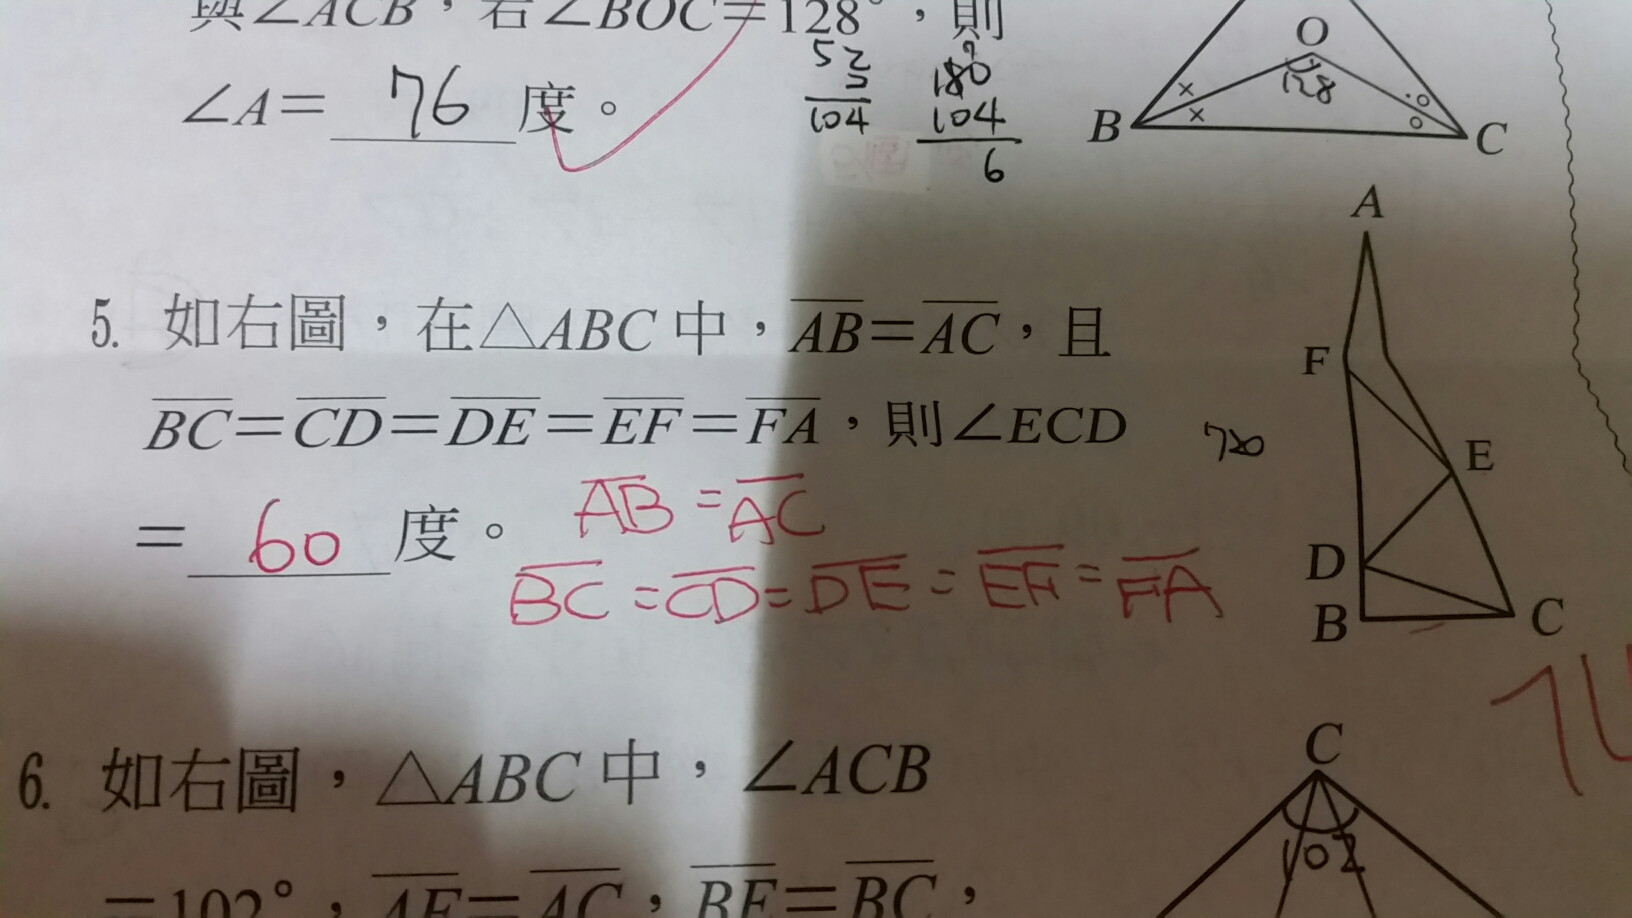 與∠ACB，若∠BOC=128°，則
∠A= 76 度。
52
2
104
180
104
6
O
128
B
C
A
F
E
D
B
C
5. 如右圖，在△ABC中，AB=AC，且
BC=CD=DE=EF=FA，則∠ECD
= 60 度。
AB=AC
BC=CD=DE=EF=FA
6. 如右圖，△ABC中，∠ACB
=102°，AE=AC，BE=BC，
C
102